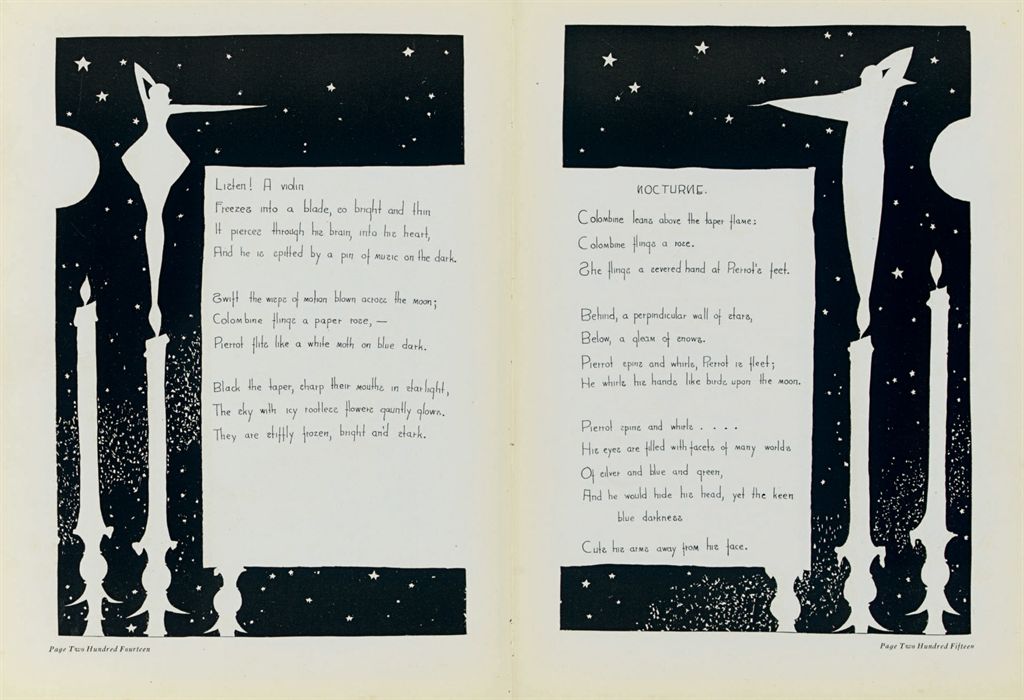 Listen! A violin
Freezes into a blade, so bright and thin
It pierces through his brain, into his heart,
And he is spitted by a pin of music on the dark.
Swift the wisps of motion blown across the moon;
Colombine flings a paper rose, —
Pierrot flits like a white moth on blue dark.
Black the taper, sharp their mouths in starlight,
The sky with icy rootless flowers gauntly glows.
They are stiffly frozen, bright and stark.
Page Two Hundred Fourteen
NOCTURNE.
Colombine leans above the taper flame:
Colombine flings a rose.
She flings a severed hand at Pierrot's feet.
Behind, a perpindicular wall of stars,
Below, a gleam of snows.
Pierrot spins and whirls, Pierrot is fleet;
He whirls his hands like birds upon the moon.
Pierrot spins and whirls . . . .
His eyes are filled with facets of many worlds
Of silver and blue and green,
And he would hide his head, yet the keen
blue darkness
Cuts his arms away from his face.
Page Two Hundred Fifteen